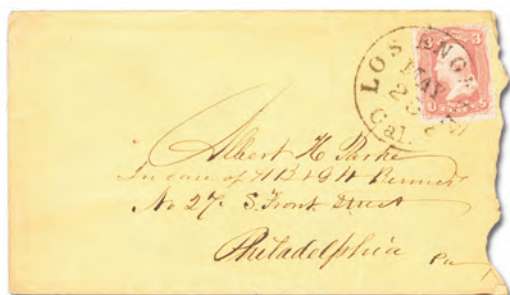 LOS ANGE
MAY
Cal.
3
U S
Albert H Parke
In care of H B & G W Benners
No 27 S. Front Street
Philadelphia Pa